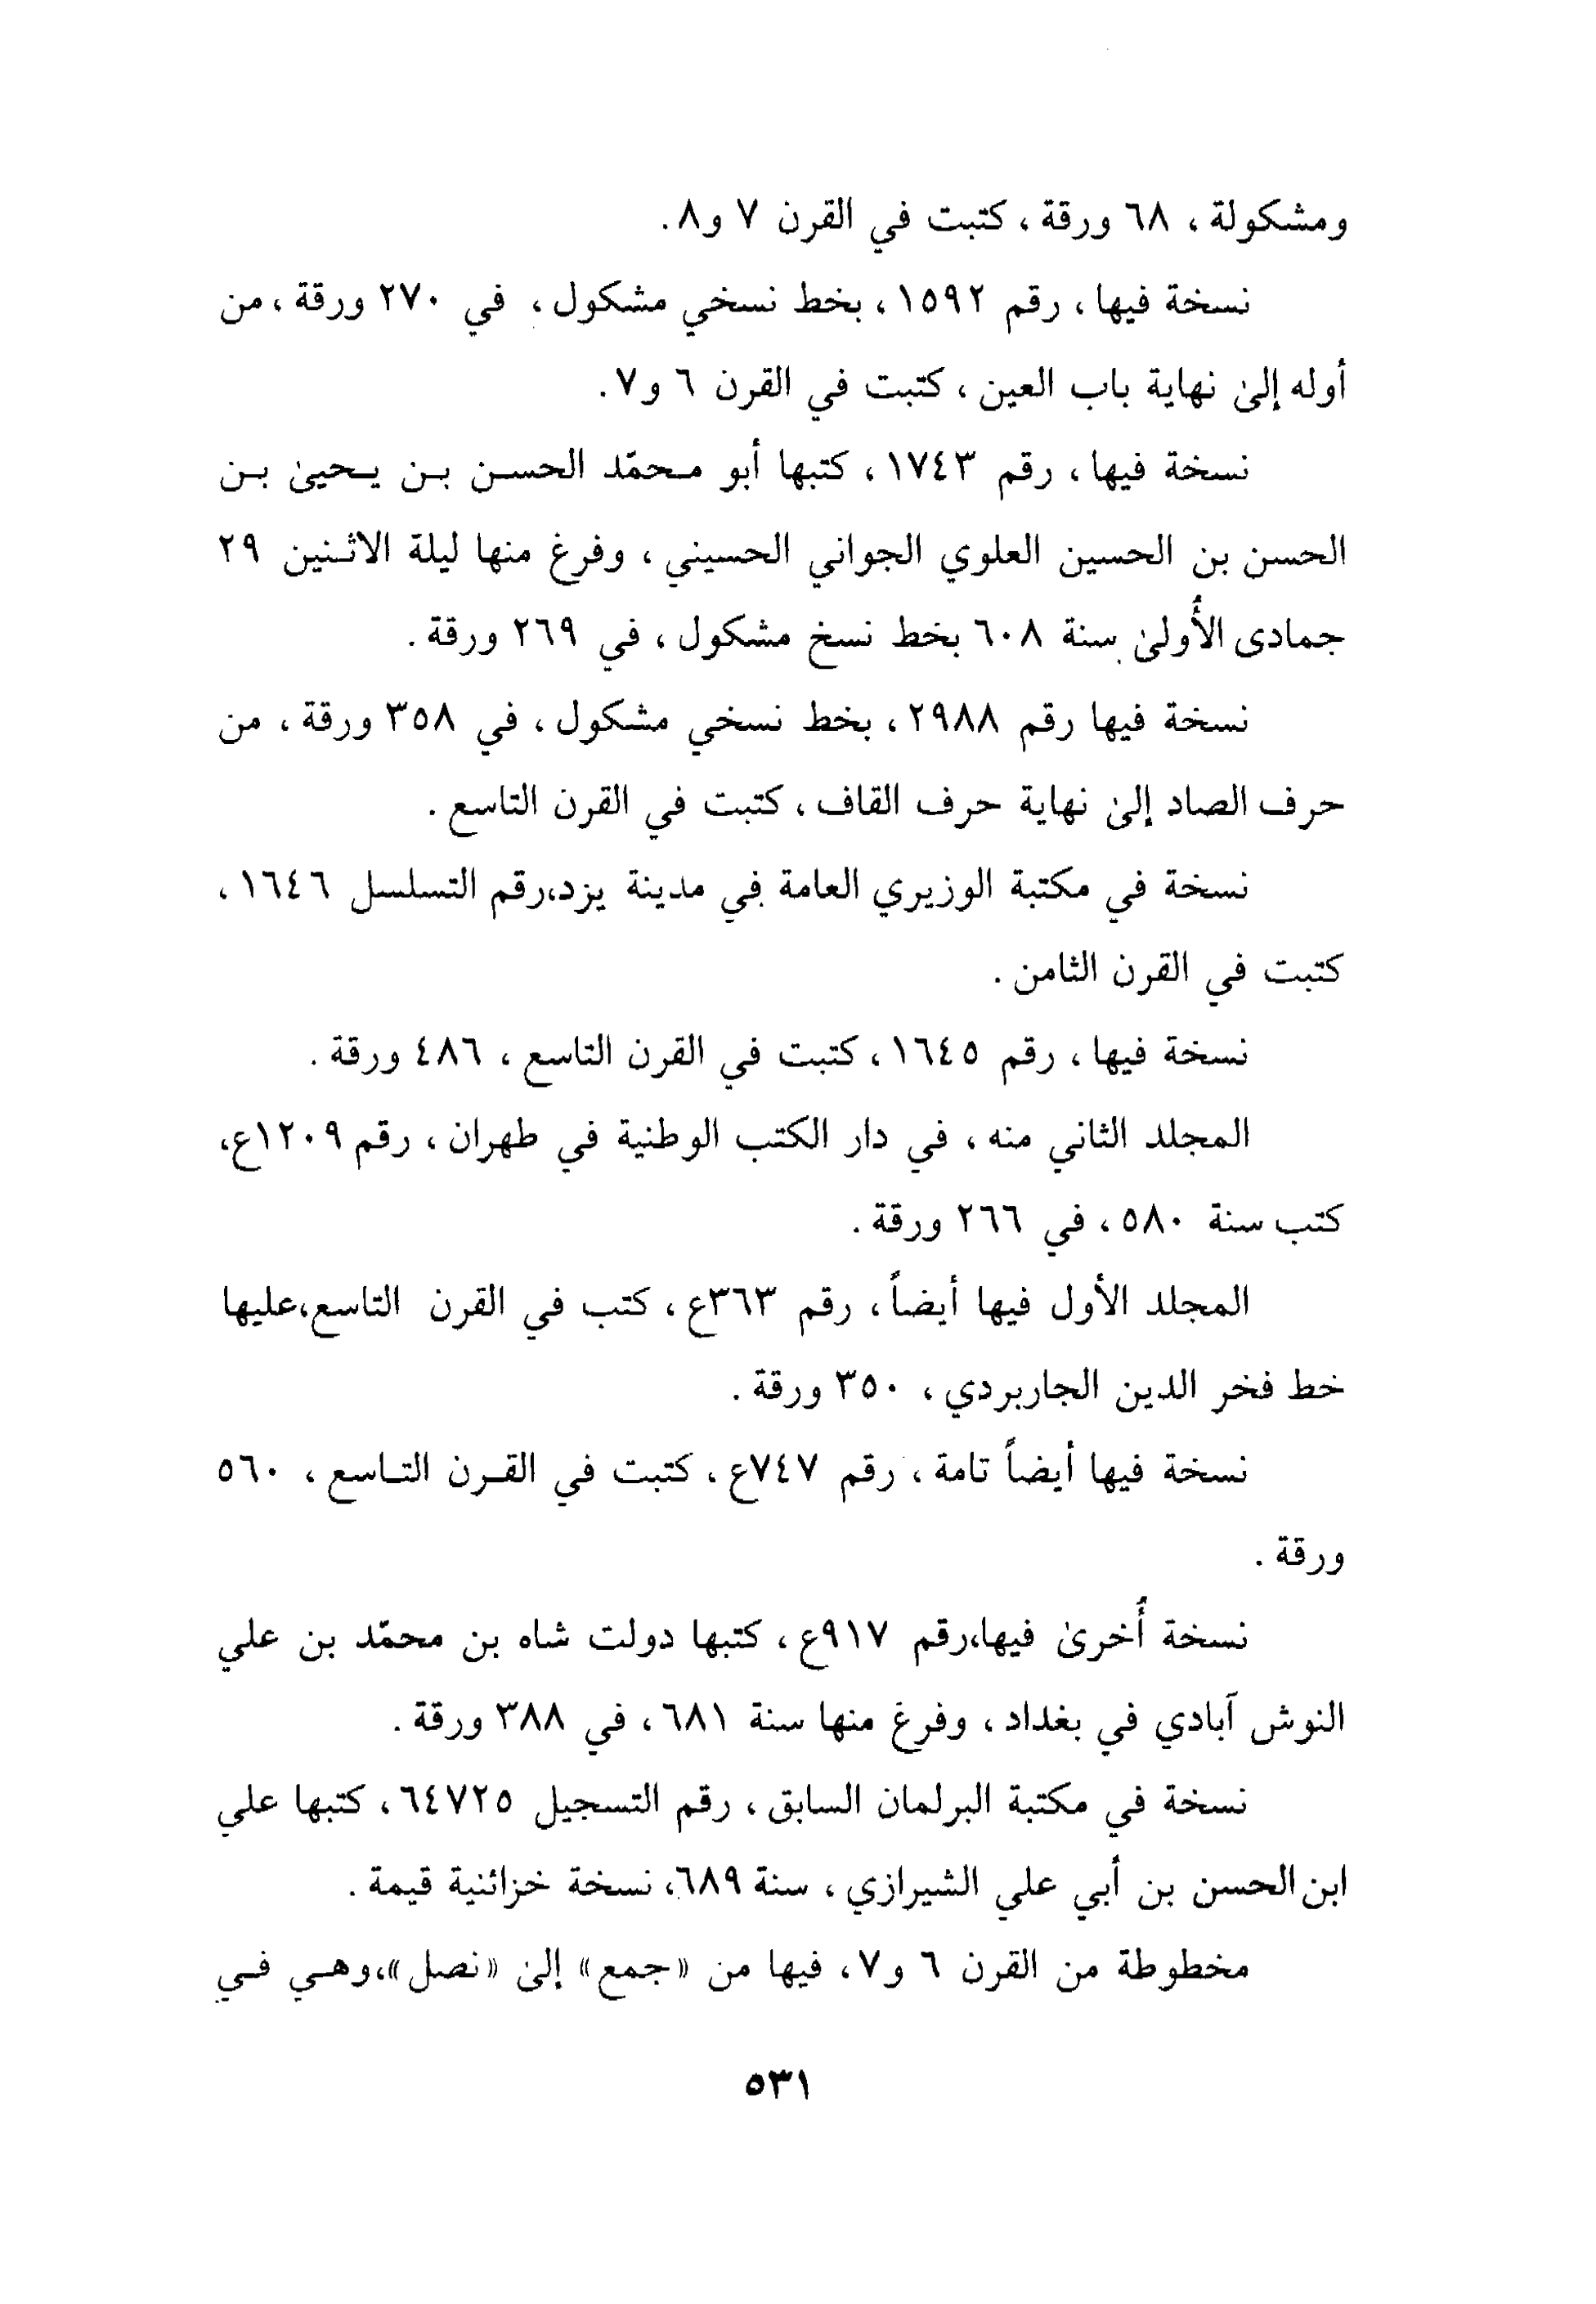 ومشكولة ، ٦٨ ورقة ، كتبت في القرن ٧ و٨.
نسخة فيها ، رقم ١٥٩٢ ، بخط نسخي مشكول ، في ٢٧٠ ورقة ، من
أوله إلىٰ نهاية باب العين ، كتبت في القرن ٦ و٧.
نسخة فيها ، رقم ١٧٤٣ ، كتبها أبو محمّد الحسن بن يحيىٰ بن
الحسن بن الحسين العلوي الجواني الحسيني ، وفرغ منها ليلة الاثنين ٢٩
جمادى الأُولىٰ سنة ٦٠٨ بخط نسخ مشكول ، في ٢٦٩ ورقة .
نسخة فيها رقم ٢٩٨٨ ، بخط نسخي مشكول ، في ٣٥٨ ورقة ، من
حرف الصاد إلىٰ نهاية حرف القاف ، كتبت في القرن التاسع .
نسخة في مكتبة الوزيري العامة في مدينة يزد،رقم التسلسل ١٦٤٦ ،
كتبت في القرن الثامن .
نسخة فيها ، رقم ١٦٤٥ ، كتبت في القرن التاسع ، ٤٨٦ ورقة .
المجلد الثاني منه ، في دار الكتب الوطنية في طهران ، رقم ١٢٠٩ع،
كتب سنة ٥٨٠ ، في ٢٦٦ ورقة .
المجلد الأول فيها أيضاً ، رقم ٣٦٣ع ، كتب في القرن التاسع،عليها
خط فخر الدين الجاربردي ، ٣٥٠ ورقة .
نسخة فيها أيضاً تامة ، رقم ٧٤٧ع ، كتبت في القرن التاسع ، ٥٦٠
ورقة .
نسخة أُخرىٰ فيها،رقم ٩١٧ع ، كتبها دولت شاه بن محمّد بن علي
النوش آبادي في بغداد ، وفرغ منها سنة ٦٨١ ، في ٣٨٨ ورقة .
نسخة في مكتبة البرلمان السابق ، رقم التسجيل ٦٤٧٢٥ ، كتبها علي
ابن الحسن بن أبي علي الشيرازي ، سنة ٦٨٩، نسخة خزائنية قيمة .
مخطوطة من القرن ٦ و٧، فيها من «جمع» إلىٰ «نصل»،وهي في
٥٣١